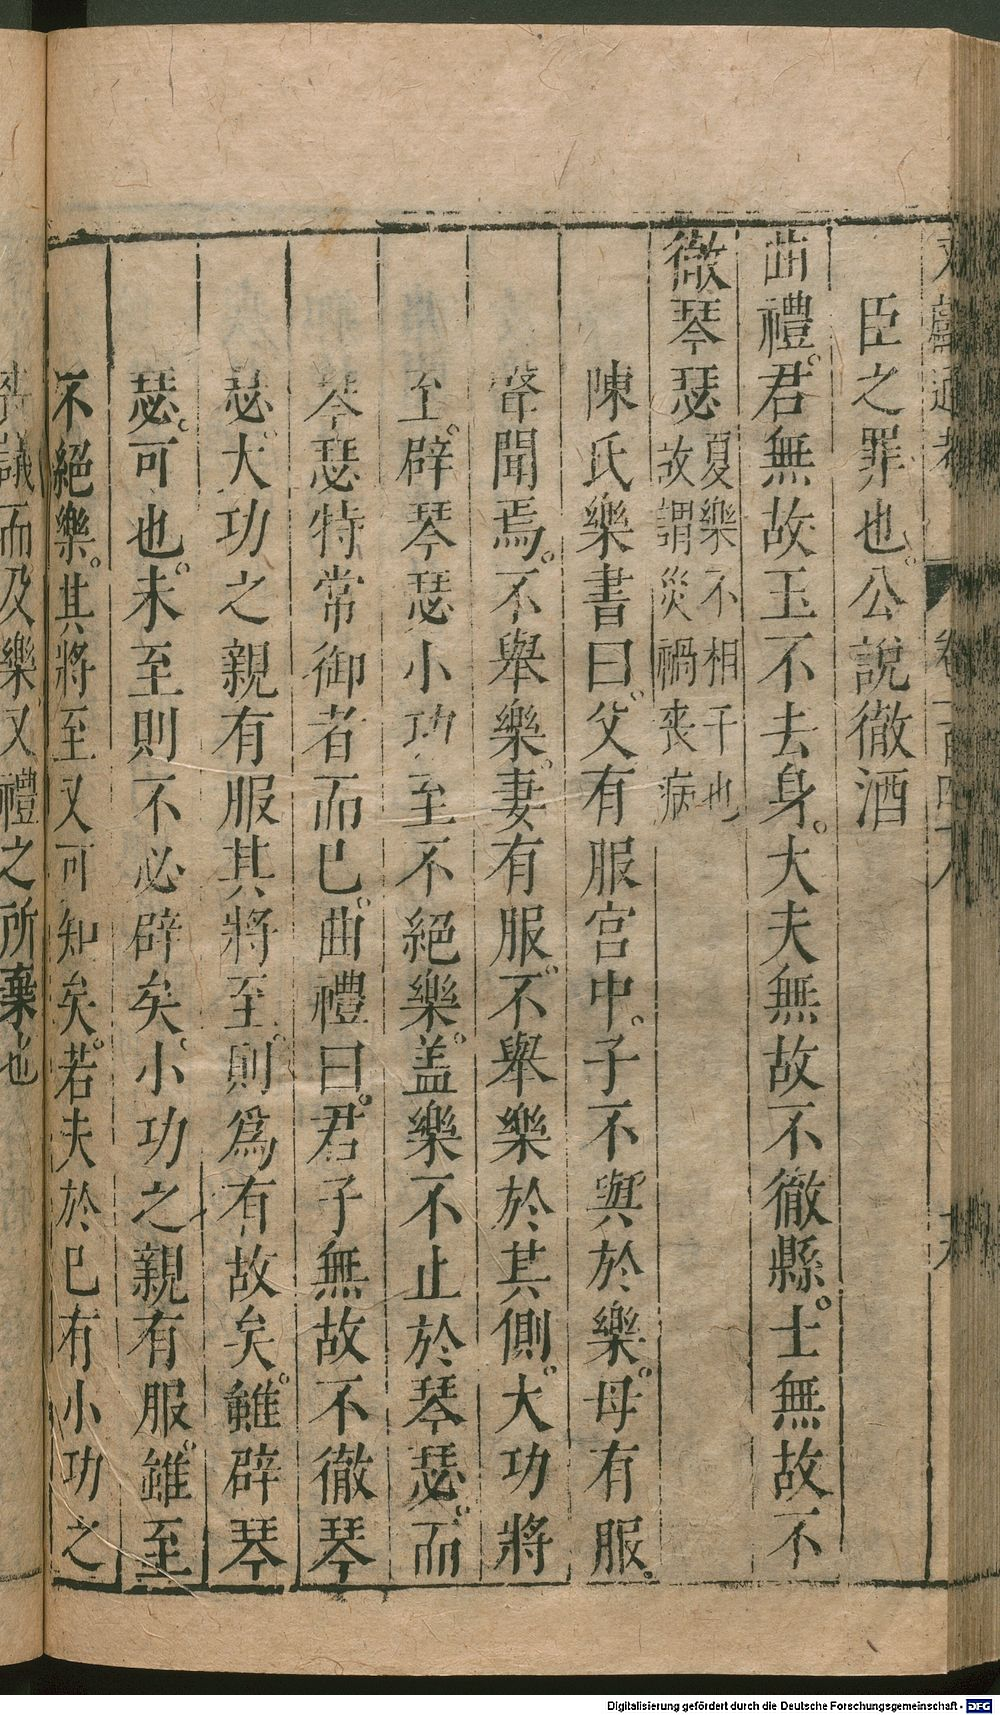 文獻通考 卷一百四八
臣之罪也。公說徹酒
曲禮。君無故玉不去身。大夫無故不徹縣。士無故不
徹琴瑟 夏樂不相干也
故謂災禍喪病
陳氏樂書曰。父有服宮中。子不與於樂。母有服。
聲聞焉。不舉樂。妻有服。不舉樂於其側。大功將
至。辟琴瑟小功至不絕樂。盖樂不止於琴瑟。而
琴瑟特常御者而已。曲禮曰。君子無故不徹琴
瑟。大功之親有服其將至。則爲有故矣。雖辟琴
瑟。可也。未至則不必辟矣。小功之親有服。雖至
不絕樂。其將至又可知矣。若夫於已有小功之
議而及樂。又禮之所棄也
Digitalisierung gefördert durch die Deutsche Forschungsgemeinschaft - DFG